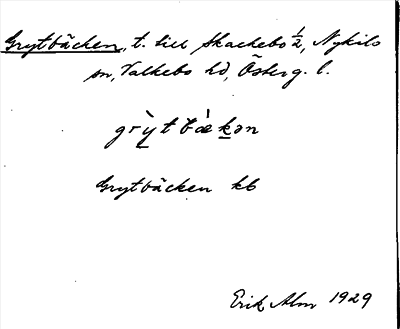 Grytbäcken, t. till Skackebo ½, Nykils
sn, Valkebo hd, Österg. l.
grỳtbækən
Grytbäcken kb
Erik Alm 1929